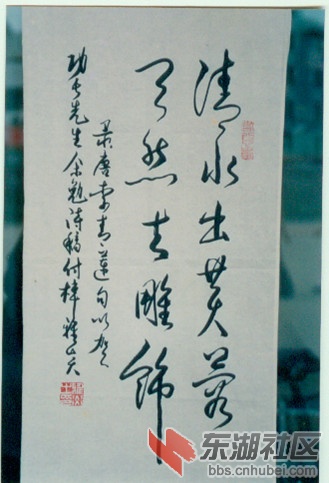 清水出芙蓉
天然去雕飾
录唐李青蓮句以賀
先生余勉詩稿付梓
东湖社区
bbs.cnhubei.com